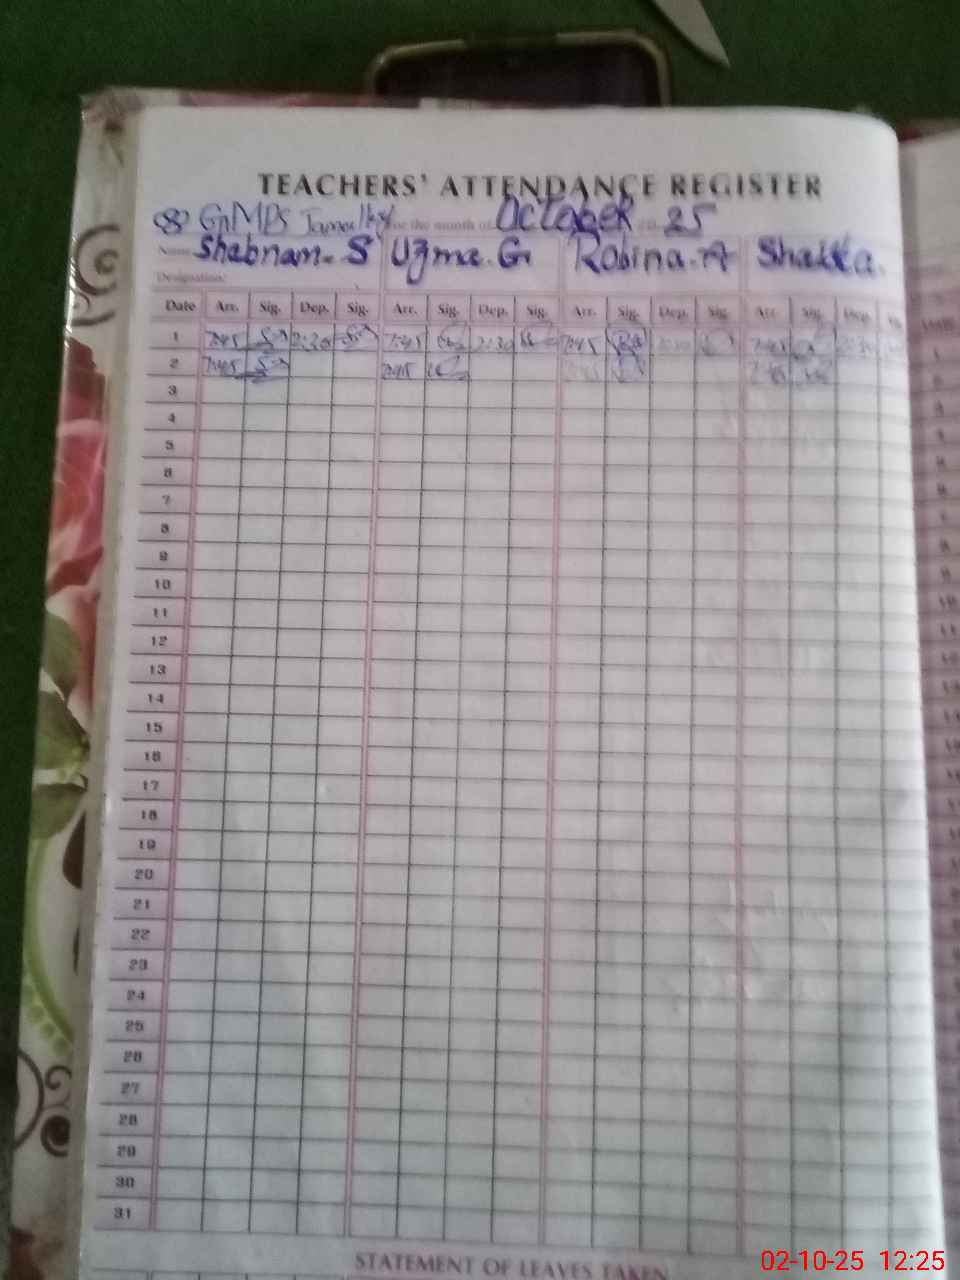 TEACHERS' ATTENDANCE REGISTER
GMPS for the month of October 25
Name Shabnam. S Uzma. G Robina. A
Designation:
Date Arr. Sig. Dep. Sig. Arr. Sig. Dep. Sig. Arr. Sig. Dep. Sig. Arr. Sig. Dep.
1 7:45 2:30 7:45 2:30 7:45 2:30 7:45 2:30
2 7:45 7:45 7:45 7:45
3
4
5
6
7
8
9
10
11
12
13
14
15
16
17
18
19
20
21
22
23
24
25
26
27
28
29
30
31
STATEMENT OF LEAVES TAKEN
02-10-25 12:25